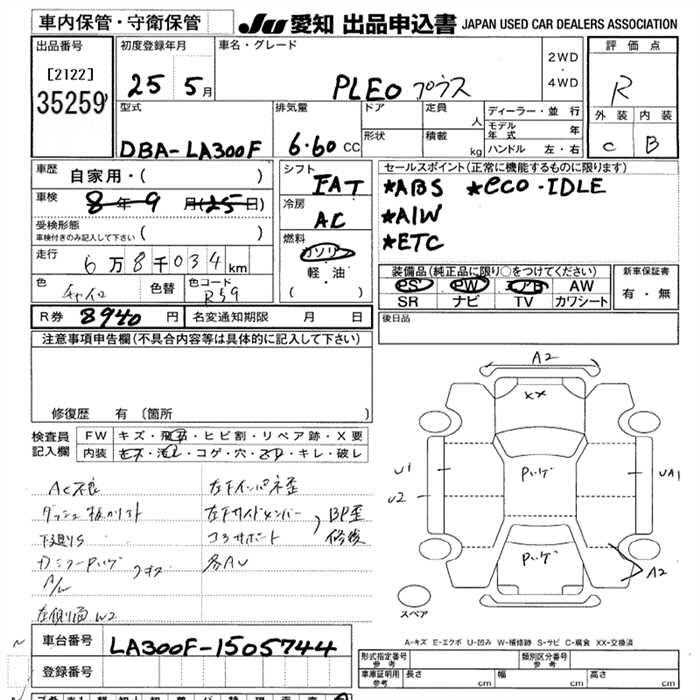 車内保管・守衛保管
JU 愛知 出品申込書 JAPAN USED CAR DEALERS ASSOCIATION
出品番号
[2122]
35259
初度登録年月
25 5月
車名・グレード
PLEO プラス
2WD
・
4WD
評価点
R
外装 内装
C B
型式
DBA-LA300F
排気量
6.60 CC
ドア
形状
定員 人
積載 kg
ディーラー・並行
モデル年式 年
ハンドル 左・右
車歴
自家用・( )
車検
8年9月(25日)
受検形態
車検付きのみ記入して下さい ( )
走行
6万8千034km
色
色替
色コード
R59
シフト
FAT
冷房
AC
燃料
ガソリン
軽・油
( )
セールスポイント(正常に機能するものに限ります)
*ABS *eco-IDLE
*A/W
*ETC
装備品(純正品に限り○をつけてください)
PS PW エアB AW
SR ナビ TV カワシート
新車保証書
有・無
R券 8940円
名変通知期限 月 日
後日品
注意事項申告欄(不具合内容等は具体的に記入して下さい)
修復歴 有(箇所 )
検査員
記入欄
FW キズ・飛石・ヒビ割・リペア跡・X要
内装 キズ・汚れ・コゲ・穴・スレ・キレ・破レ
AC不良
下廻りS
A/W
左側面W2
左インパネ歪
左サイドメンバー
コアサポート
BP歪
修後
各AU
A2
XX
U1
U2
UA1
A2
スペア
A-キズ E-エクボ U-凹み W-補修跡 S-サビ C-腐食 XX-交換済
車台番号 LA300F-1505744
登録番号
形式指定番号
参考
類別区分番号
参考
車庫証明用
参考
長さ cm 幅 cm 高さ cm